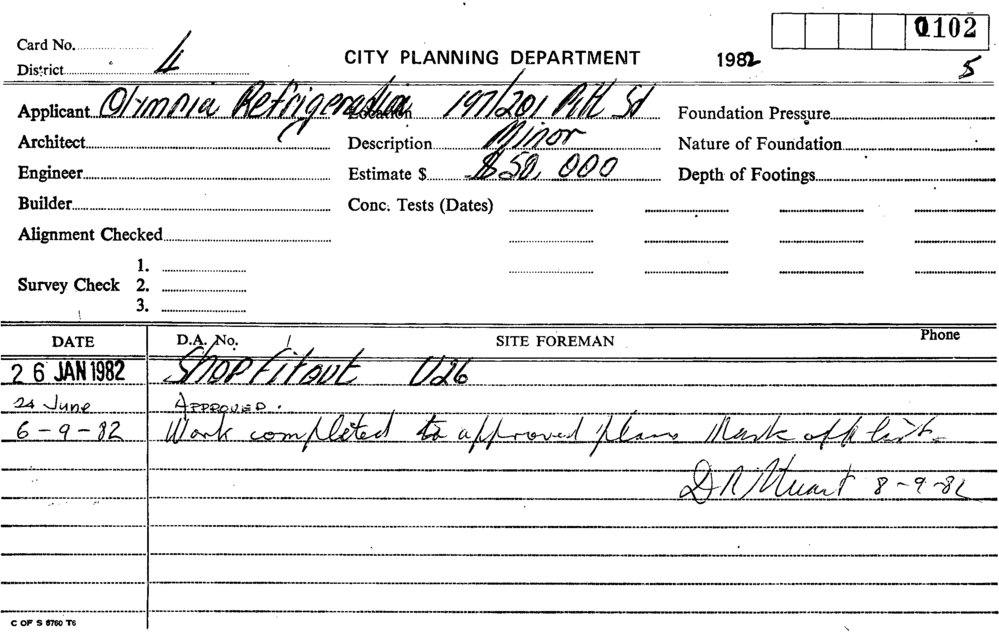 0102
Card No.
CITY PLANNING DEPARTMENT 1982
District 4 5
Applicant Olympia Refrigeration Location 197/201 Pitt St Foundation Pressure
Architect Description Minor Nature of Foundation
Engineer Estimate $ $50,000 Depth of Footings
Builder Conc. Tests (Dates)
Alignment Checked
1.
Survey Check 2.
3.
DATE D.A. No. SITE FOREMAN Phone
26 JAN 1982 Shop Fitout U26
24 June APPROVED.
6-9-82 Work completed to approved plans Mark off list.
D R Stuart 8-9-82
C OF S 8760 T6